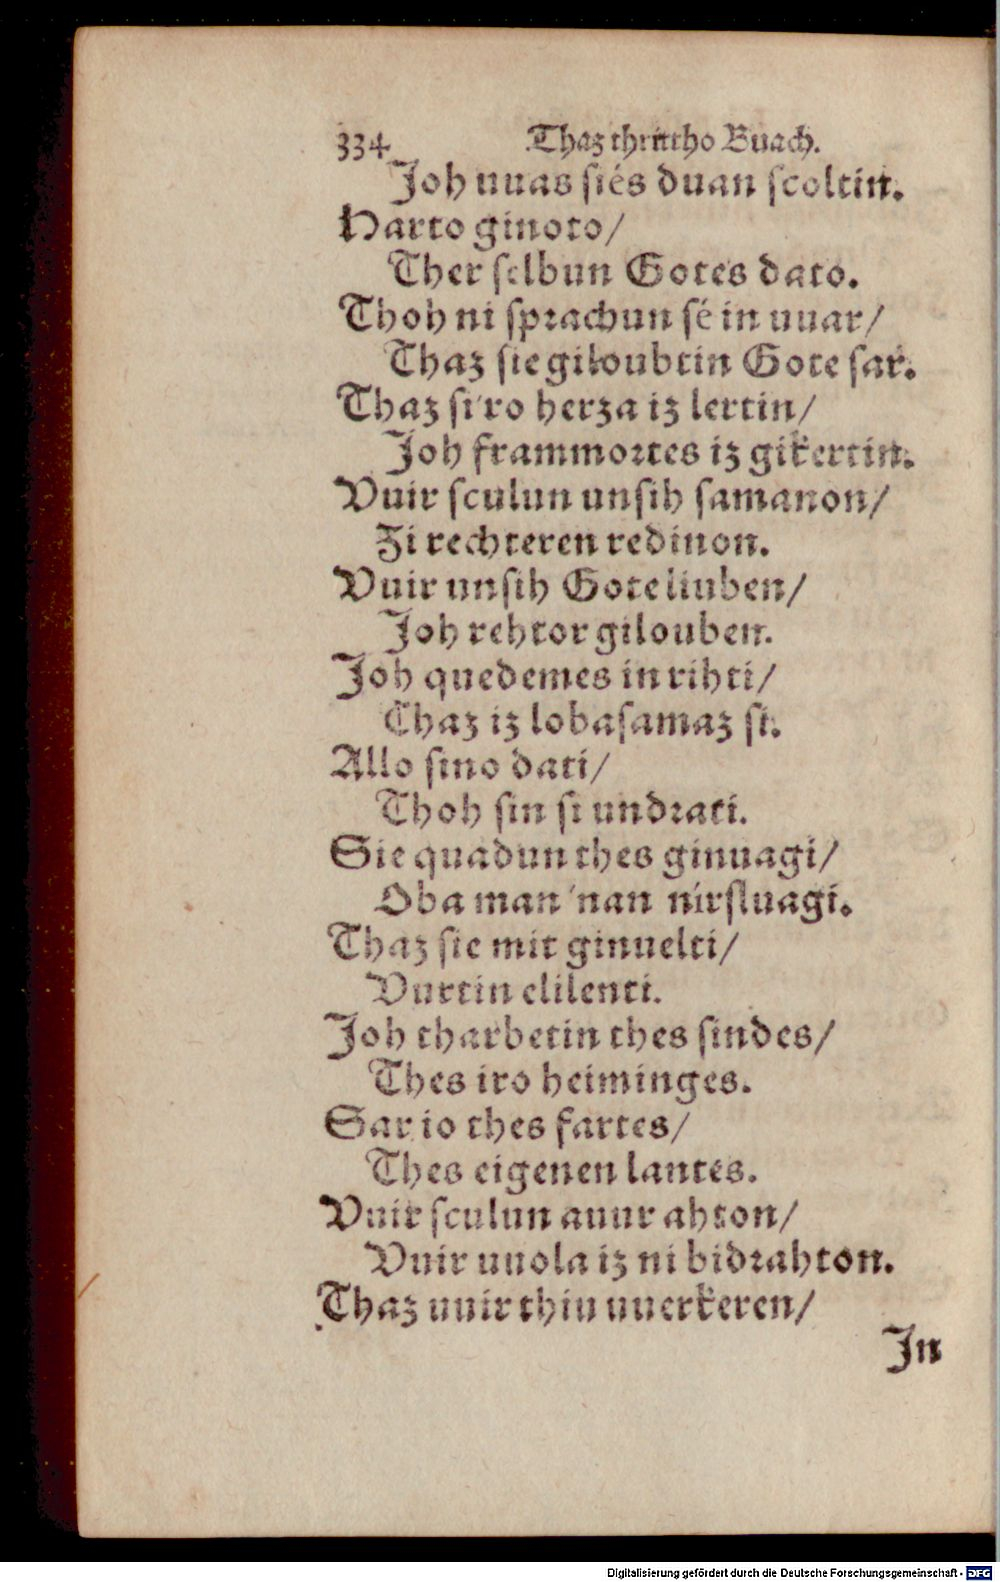 334 Thaz thritho Buach.
Joh uuas siés duan scoltin.
Harto ginoto/
Ther selbun Gotes dato.
Thoh ni sprachun sé in uuar/
Thaz sie giloubtin Gote sar.
Thaz si'ro herza iz lertin/
Joh frammortes iz gikertin.
Vuir sculun unsih samanon/
Zi rechteren redinon.
Vuir unsih Gote liuben/
Joh rehtor gilouben.
Joh quedemes in rihti/
Thaz iz lobasamaz si.
Allo sino dati/
Thoh sin si undrati.
Sie quadun thes ginuagi/
Oba man 'nan nirsluagi.
Thaz sie mit ginuelti/
Vurtin elilenti.
Joh tharbetin thes sindes/
Thes iro heiminges.
Sar io thes fartes/
Thes eigenen lantes.
Vuir sculun auur ahton/
Vuir uuola iz ni bidrahton.
Thaz uuir thiu uuerkeren/
In
Digitalisierung gefördert durch die Deutsche Forschungsgemeinschaft - DFG